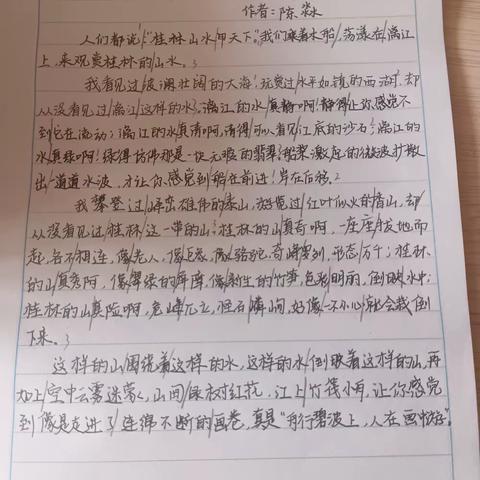 作者:陈淼
人们都说:“桂林山水甲天下。”我们乘着木船,荡漾在漓江
上,来观赏桂林的山水。
我看见过波澜壮阔的大海,玩赏过水平如镜的西湖,却
从没看见过漓江这样的水。漓江的水真静啊!静得让你感觉不
到它在流动;漓江的水真清啊,清得可以看见江底的沙石;漓江的
水真绿啊!绿得仿佛那是一块无瑕的翡翠。船桨激起的微波扩散
出一道道水波,才让你感觉到船在前进,岸在后移。
我攀登过峰峦雄伟的泰山,游览过红叶似火的香山,却
从没看见过桂林这一带的山。桂林的山真奇啊,一座座拔地而
起,各不相连,像老人,像巨象,像骆驼,奇峰罗列,形态万千;桂林
的山真秀啊,像翠绿的屏障,像新生的竹笋,色彩明丽,倒映水中;
桂林的山真险啊,危峰兀立,怪石嶙峋,好像一不小心就会栽倒
下来。
这样的山围绕着这样的水,这样的水倒映着这样的山,再
加上空中云雾迷蒙,山间绿树红花,江上竹筏小舟,让你感觉
到像是走进了连绵不断的画卷,真是“舟行碧波上,人在画中游”。